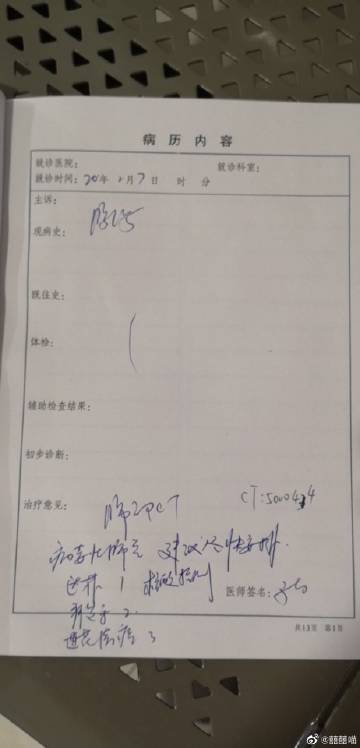 病历内容
就诊医院： 就诊科室：
就诊时间：20年 2月7日 时 分
主诉：
现病史：
既往史：
体检：
辅助检查结果：
初步诊断：
治疗意见： 肺部CT CT:5000434
病毒性肺炎 建议尽快安排
1 核酸检测
2.
3
医师签名：
共13页 第1页
@囍囍喵